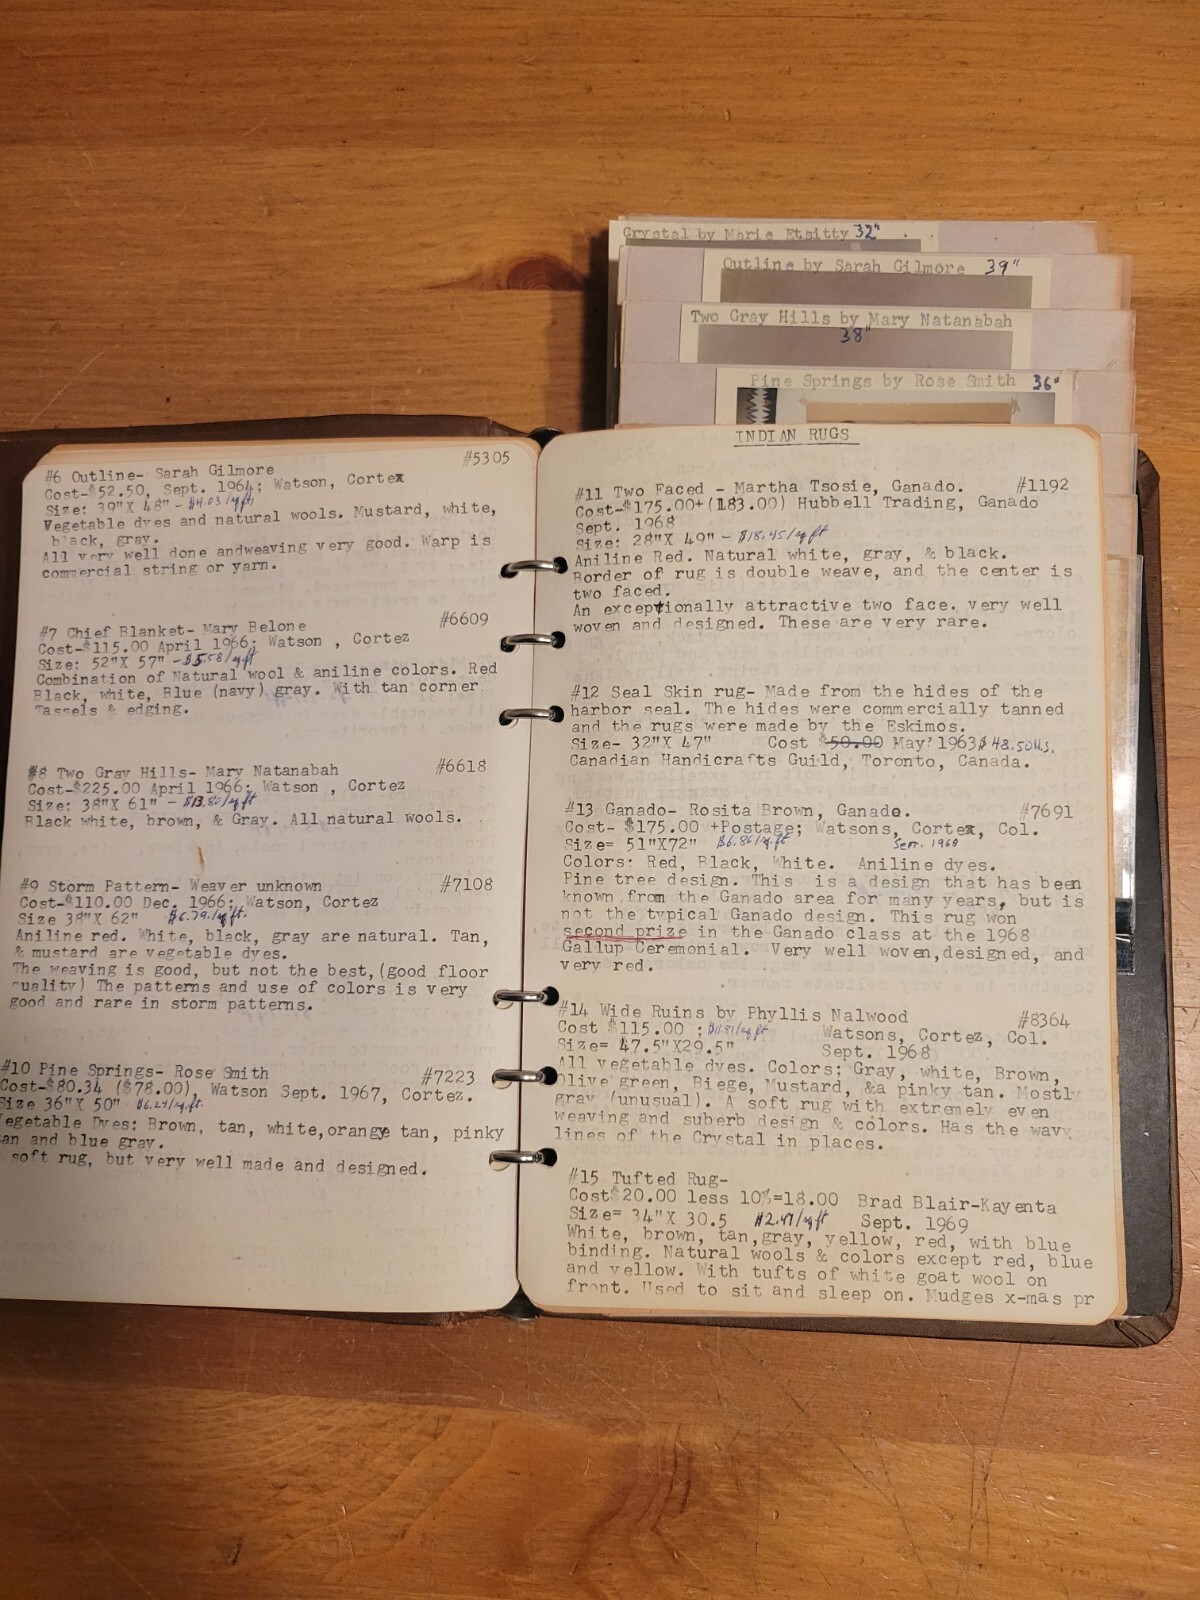 Crystal by Marie Etsitty 32"
Outline by Sarah Gilmore 39"
Two Gray Hills by Mary Natanabah
38"
Pine Springs by Rose Smith 36"
#5305
#6 Outline- Sarah Gilmore
Cost-$52.50, Sept. 1964; Watson, Cortex
Size: 39"X 48" - $4.03/sq ft
Vegetable dyes and natural wools. Mustard, white,
black, gray.
All very well done andweaving very good. Warp is
commercial string or yarn.
#6609
#7 Chief Blanket- Mary Belone
Cost-$115.00 April 1966; Watson , Cortez
Size: 52"X 57" - $5.58/sq ft
Combination of Natural wool & aniline colors. Red
Black, white, Blue (navy) gray. With tan corner
Tassels & edging.
#8 Two Gray Hills- Mary Natanabah #6618
Cost-$225.00 April 1966; Watson , Cortez
Size: 38"X 61" - $13.80/sq ft
Black white, brown, & Gray. All natural wools.
#9 Storm Pattern- Weaver unknown #7108
Cost-$110.00 Dec. 1966; Watson, Cortez
Size 38"X 62" $6.79/sq ft.
Aniline red. White, black, gray are natural. Tan,
& mustard are vegetable dyes.
The weaving is good, but not the best,(good floor
quality) The patterns and use of colors is very
good and rare in storm patterns.
#10 Pine Springs- Rose Smith #7223
Cost-$80.34 ($78.00), Watson Sept. 1967, Cortez.
Size 36"X 50" $6.24/sq.ft.
Vegetable Dyes: Brown, tan, white,orange tan, pinky
tan and blue gray.
soft rug, but very well made and designed.
INDIAN RUGS
#11 Two Faced - Martha Tsosie, Ganado. #1192
Cost-$175.00+(183.00) Hubbell Trading, Ganado
Sept. 1968
Size: 28"X 49" - $18.45/sq ft
Aniline Red. Natural white, gray, & black.
Border of rug is double weave, and the center is
two faced.
An exceptionally attractive two face. very well
woven and designed. These are very rare.
#12 Seal Skin rug- Made from the hides of the
harbor seal. The hides were commercially tanned
and the rugs were made by the Eskimos.
Size- 32"X 47" Cost $50.00 May' 1963 $48.50 U.S.
Canadian Handicrafts Guild, Toronto, Canada.
#13 Ganado- Rosita Brown, Ganado. #7691
Cost- $175.00 +Postage; Watsons, Cortex, Col.
Size= 51"X72" $6.86/sq.ft Sept. 1968
Colors: Red, Black, White. Aniline dyes.
Pine tree design. This is a design that has been
known from the Ganado area for many years, but is
not the typical Ganado design. This rug won
second prize in the Ganado class at the 1968
Gallup Ceremonial. Very well woven,designed, and
very red.
#14 Wide Ruins by Phyllis Nalwood #8364
Cost $115.00 ; $11.81/sq ft Watsons, Cortez, Col.
Size= 47.5"X29.5" Sept. 1968
All vegetable dyes. Colors; Gray, white, Brown,
Olive green, Biege, Mustard, &a pinky tan. Mostly
gray (unusual). A soft rug with extremely even
weaving and suberb design & colors. Has the wavy
lines of the Crystal in places.
#15 Tufted Rug-
Cost$20.00 less 10%=18.00 Brad Blair-Kayenta
Size= 34"X 30.5 $2.47/sq ft Sept. 1969
White, brown, tan,gray, yellow, red, with blue
binding. Natural wools & colors except red, blue
and yellow. With tufts of white goat wool on
front. Used to sit and sleep on. Mudges x-mas pr